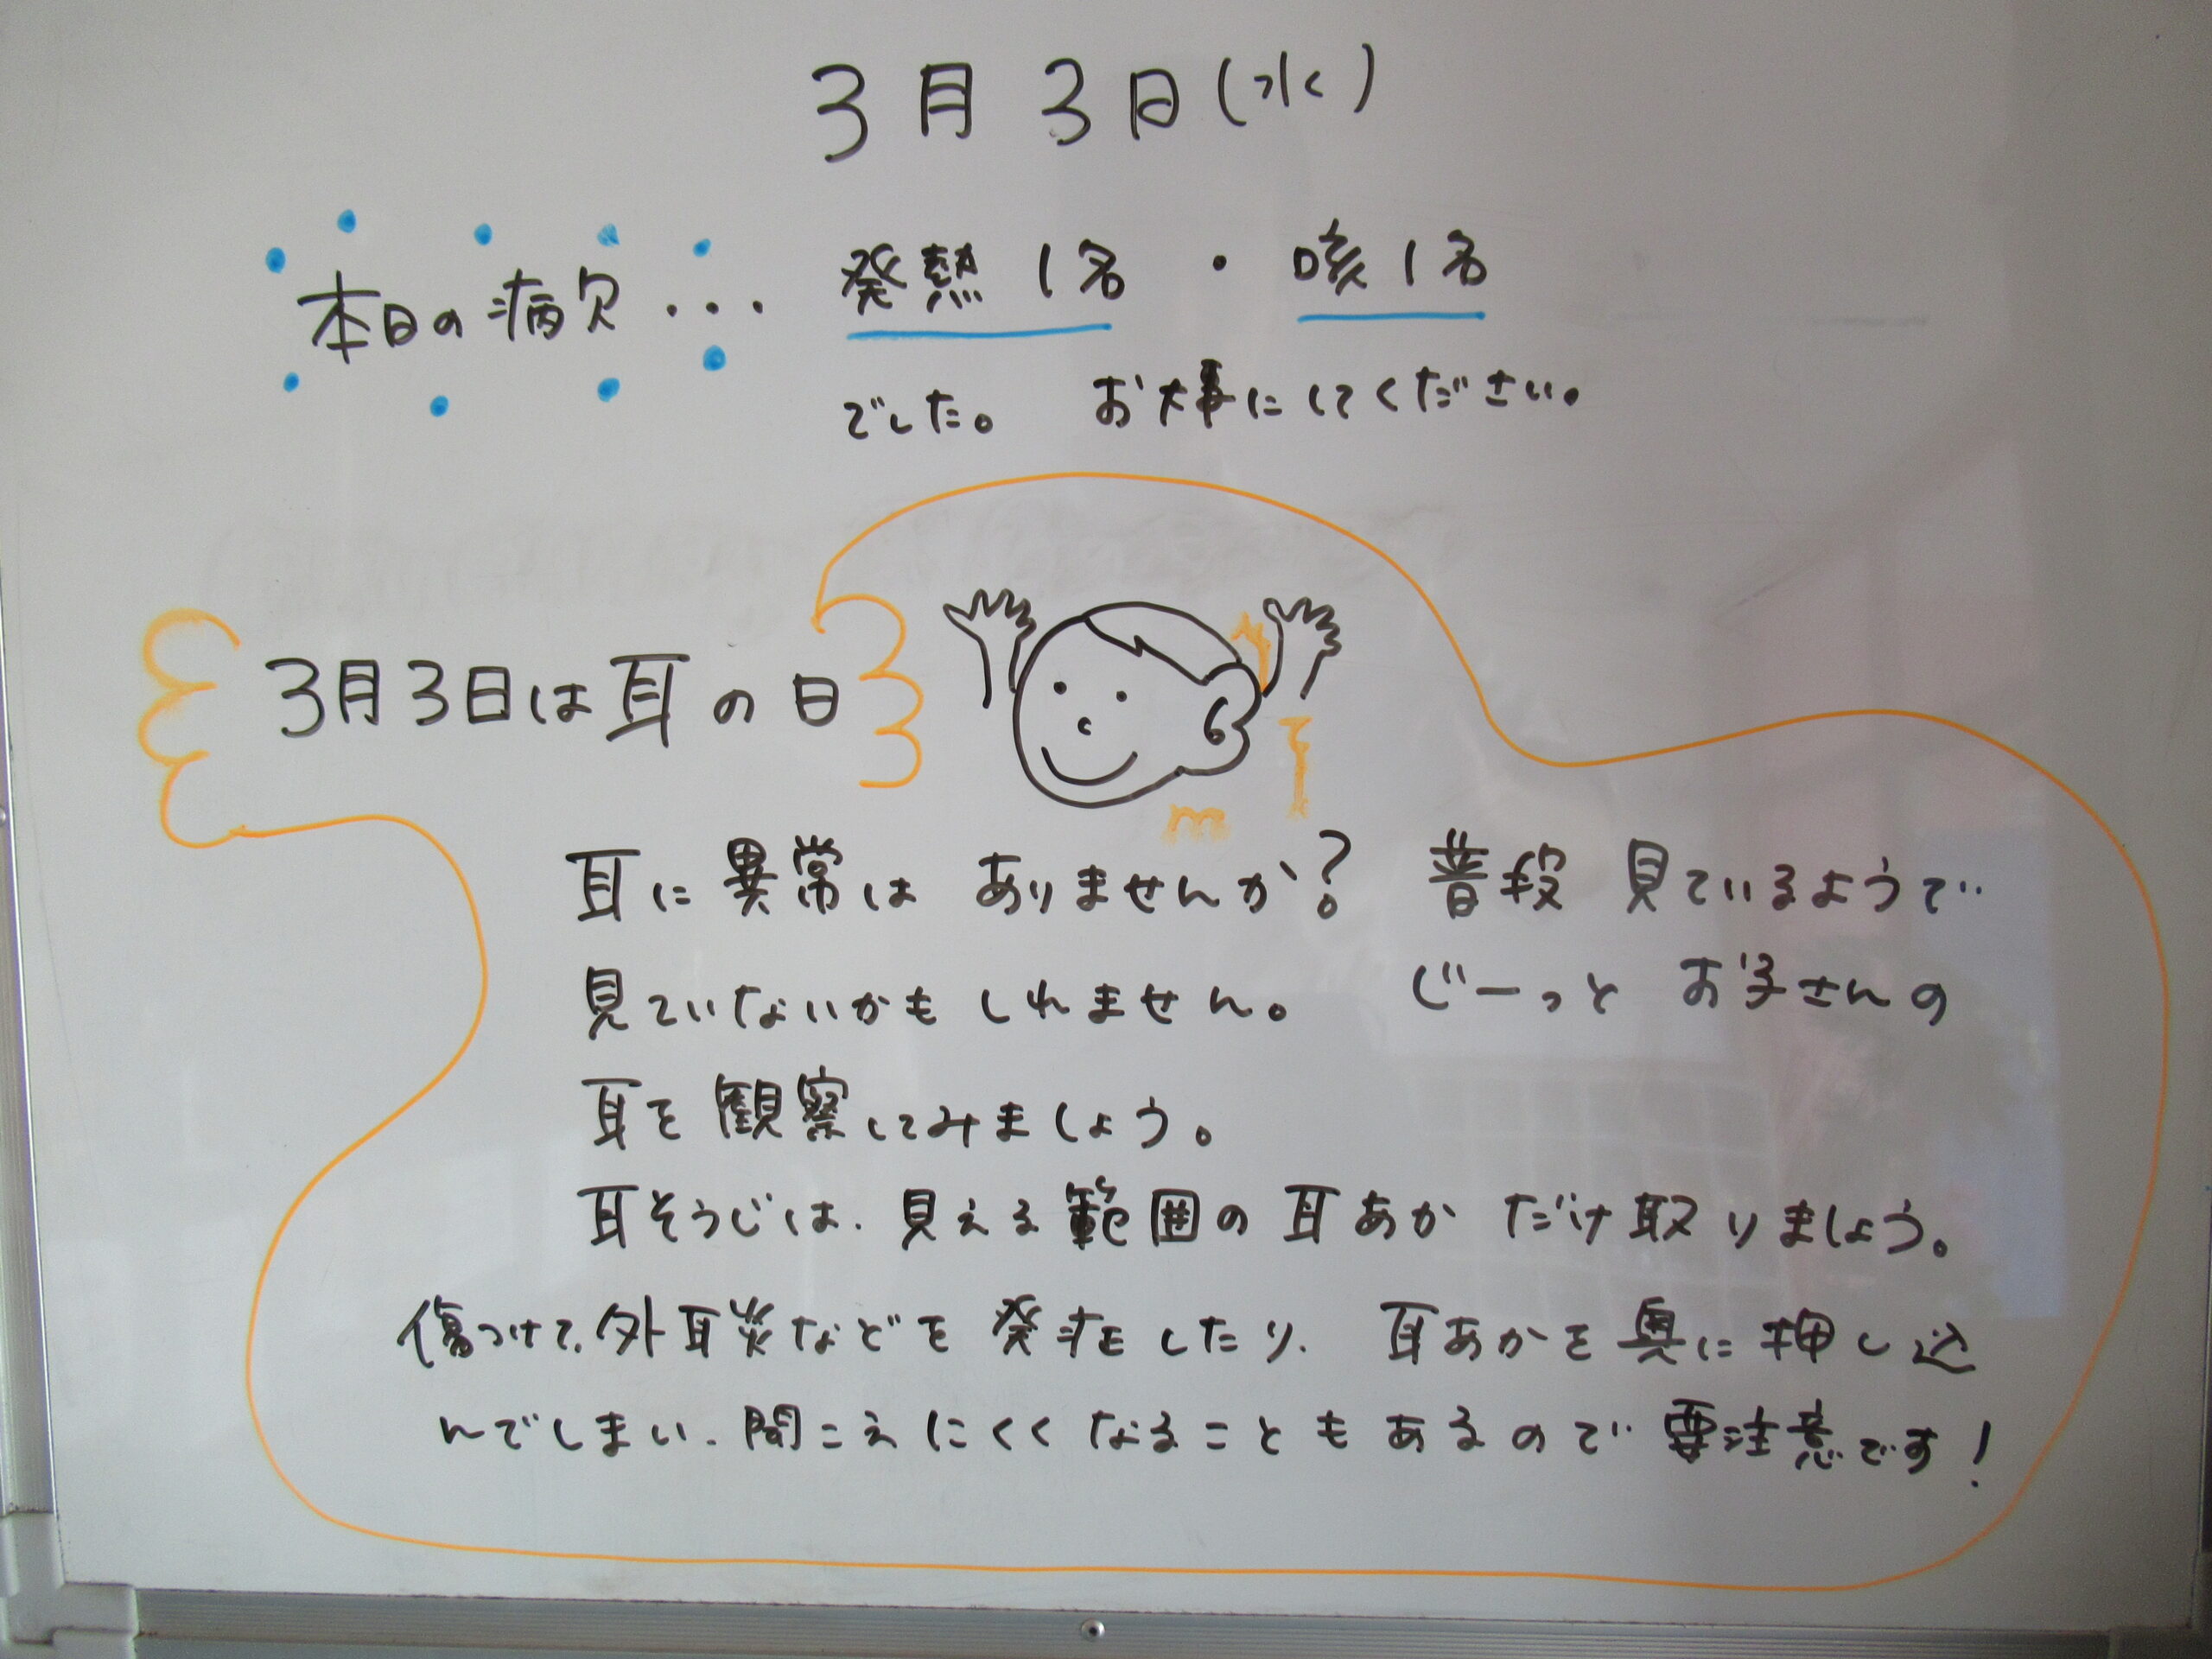 3月3日(水)
本日の病欠... 発熱 1名 ・ 咳 1名
でした。 お大事にしてください。
3月3日は耳の日
耳に異常は ありませんか? 普段 見ているようで
見ていないかも しれません。 じーっと お子さんの
耳を観察してみましょう。
耳そうじは、見える範囲の耳あか だけ取りましょう。
傷つけて、外耳炎などを 発症したり、 耳あかを奥に押し込
んでしまい、聞こえにくくなることもあるので要注意です!